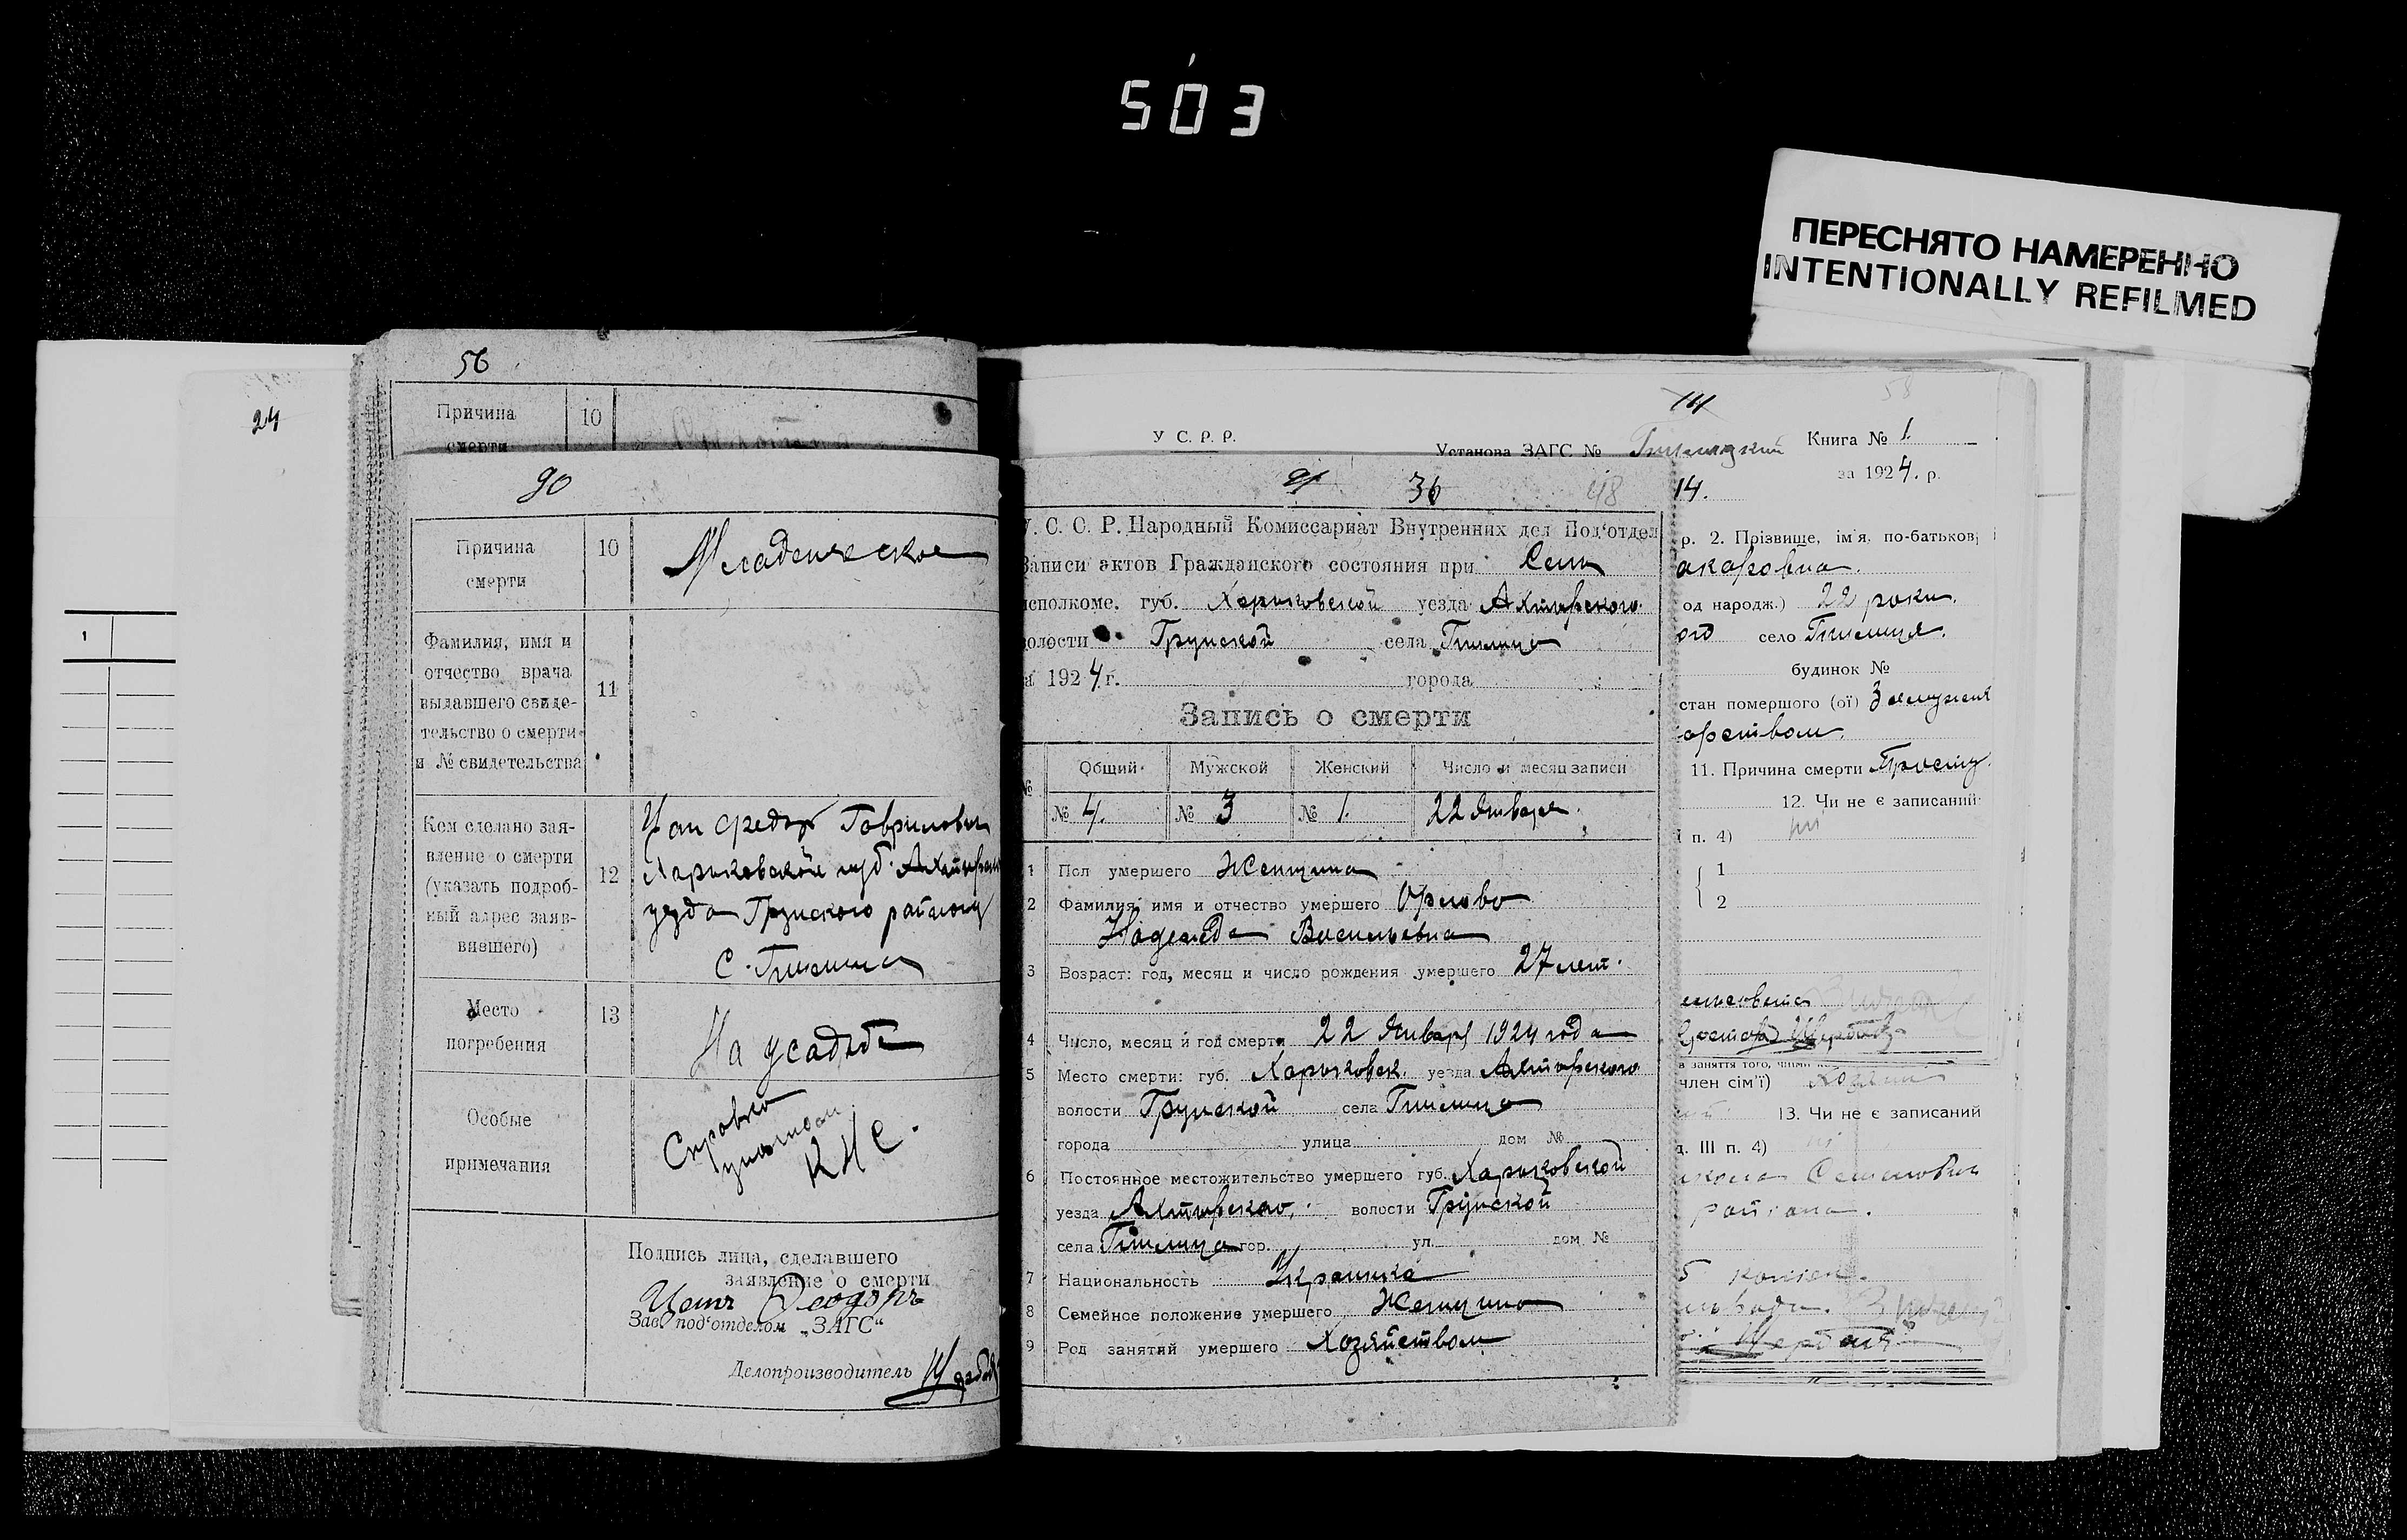 503
ПЕРЕСНЯТО НАМЕРЕННО
INTENTIONALLY REFILMED
24
1
56
Причина 10
смерти
90
Причина 10 Младенческое
смерти
Фамилия, имя и
отчество врача
выдавшего свиде-
тельство о смерти
и № свидетельства
11
Кем сделано зая-
вление о смерти
(указать подроб-
ный адрес заяв-
вившего)
12
Федор Гаврилович
Харьковской губ. Ахтырск
уезда Грунского района
С.
Место 13 На усадьбе
погребения
Особые
примечания
Справка
КНС.
Подпись лица, сделавшего
заявление о смерти
Зав. под'отделом „ЗАГС"
Делопроизводитель
У С. Р. Р.
Установа ЗАГС №
Книга № 1.
за 1924. р.
58
36
48
У. С. С. Р. Народный Комиссариат Внутренних дел Под'отдел
Записи актов Гражданского состояния при Села
исполкоме. губ. Харьковской уезда Ахтырского
волости Грунской села
а 1924 г. города
Запись о смерти
№ Общий Мужской Женский Число и месяц записи
№ 4. № 3 № 1. 22 Января
1 Пол умершего Женщина
2 Фамилия, имя и отчество умершего Орлова
Надежда Васильевна
3 Возраст: год, месяц и число рождения умершего 27 лет.
4 Число, месяц и год смерти 22 Января 1924 года
5 Место смерти: губ. Харьковск. уезда Ахтырского
волости Грунской села
города улица дом №
6 Постоянное местожительство умершего губ. Харьковской
уезда Ахтырского, волости Грунской
села гор. ул. дом №
7 Национальность Украинка
8 Семейное положение умершего Женщина
9 Род занятий умершего Хозяйством
14.
р. 2. Прізвище, ім'я, по-батькові
акаровна.
од народж.) 22 роки.
ого село
будинок №
стан помершого (ої) Замужня
арством.
11. Причина смерти
12. Чи не є записаний
і п. 4) ні
1
2
в заняття того, чиїм
член сім'ї)
13. Чи не є записаний
д. III п. 4)
Семенович
района.